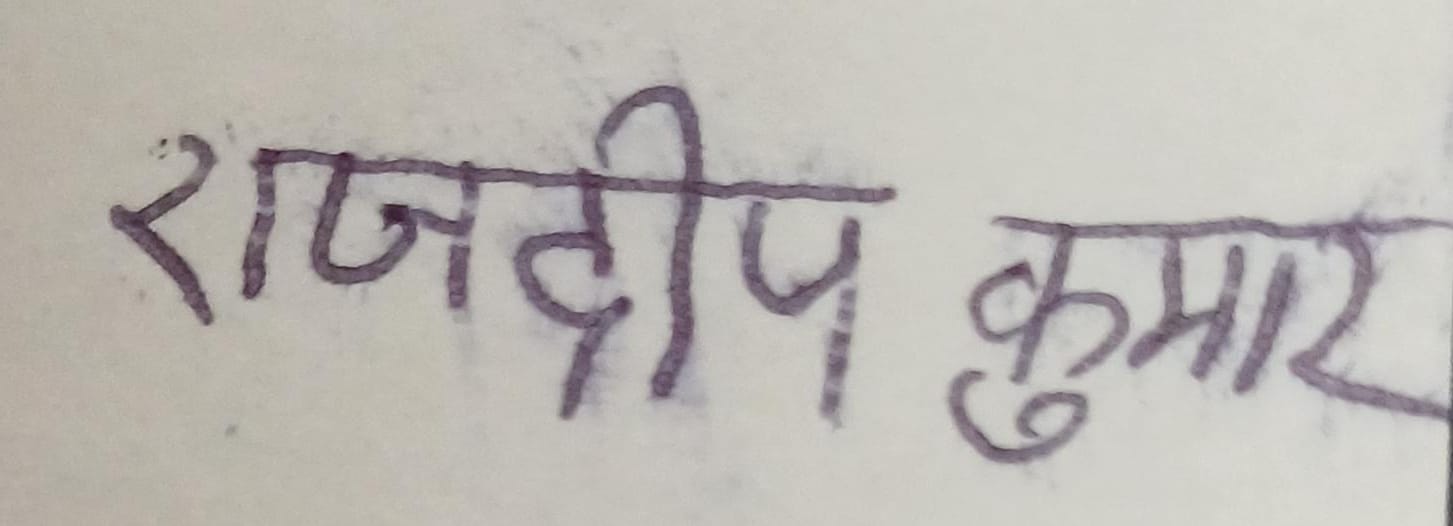 राजदीप कुमार